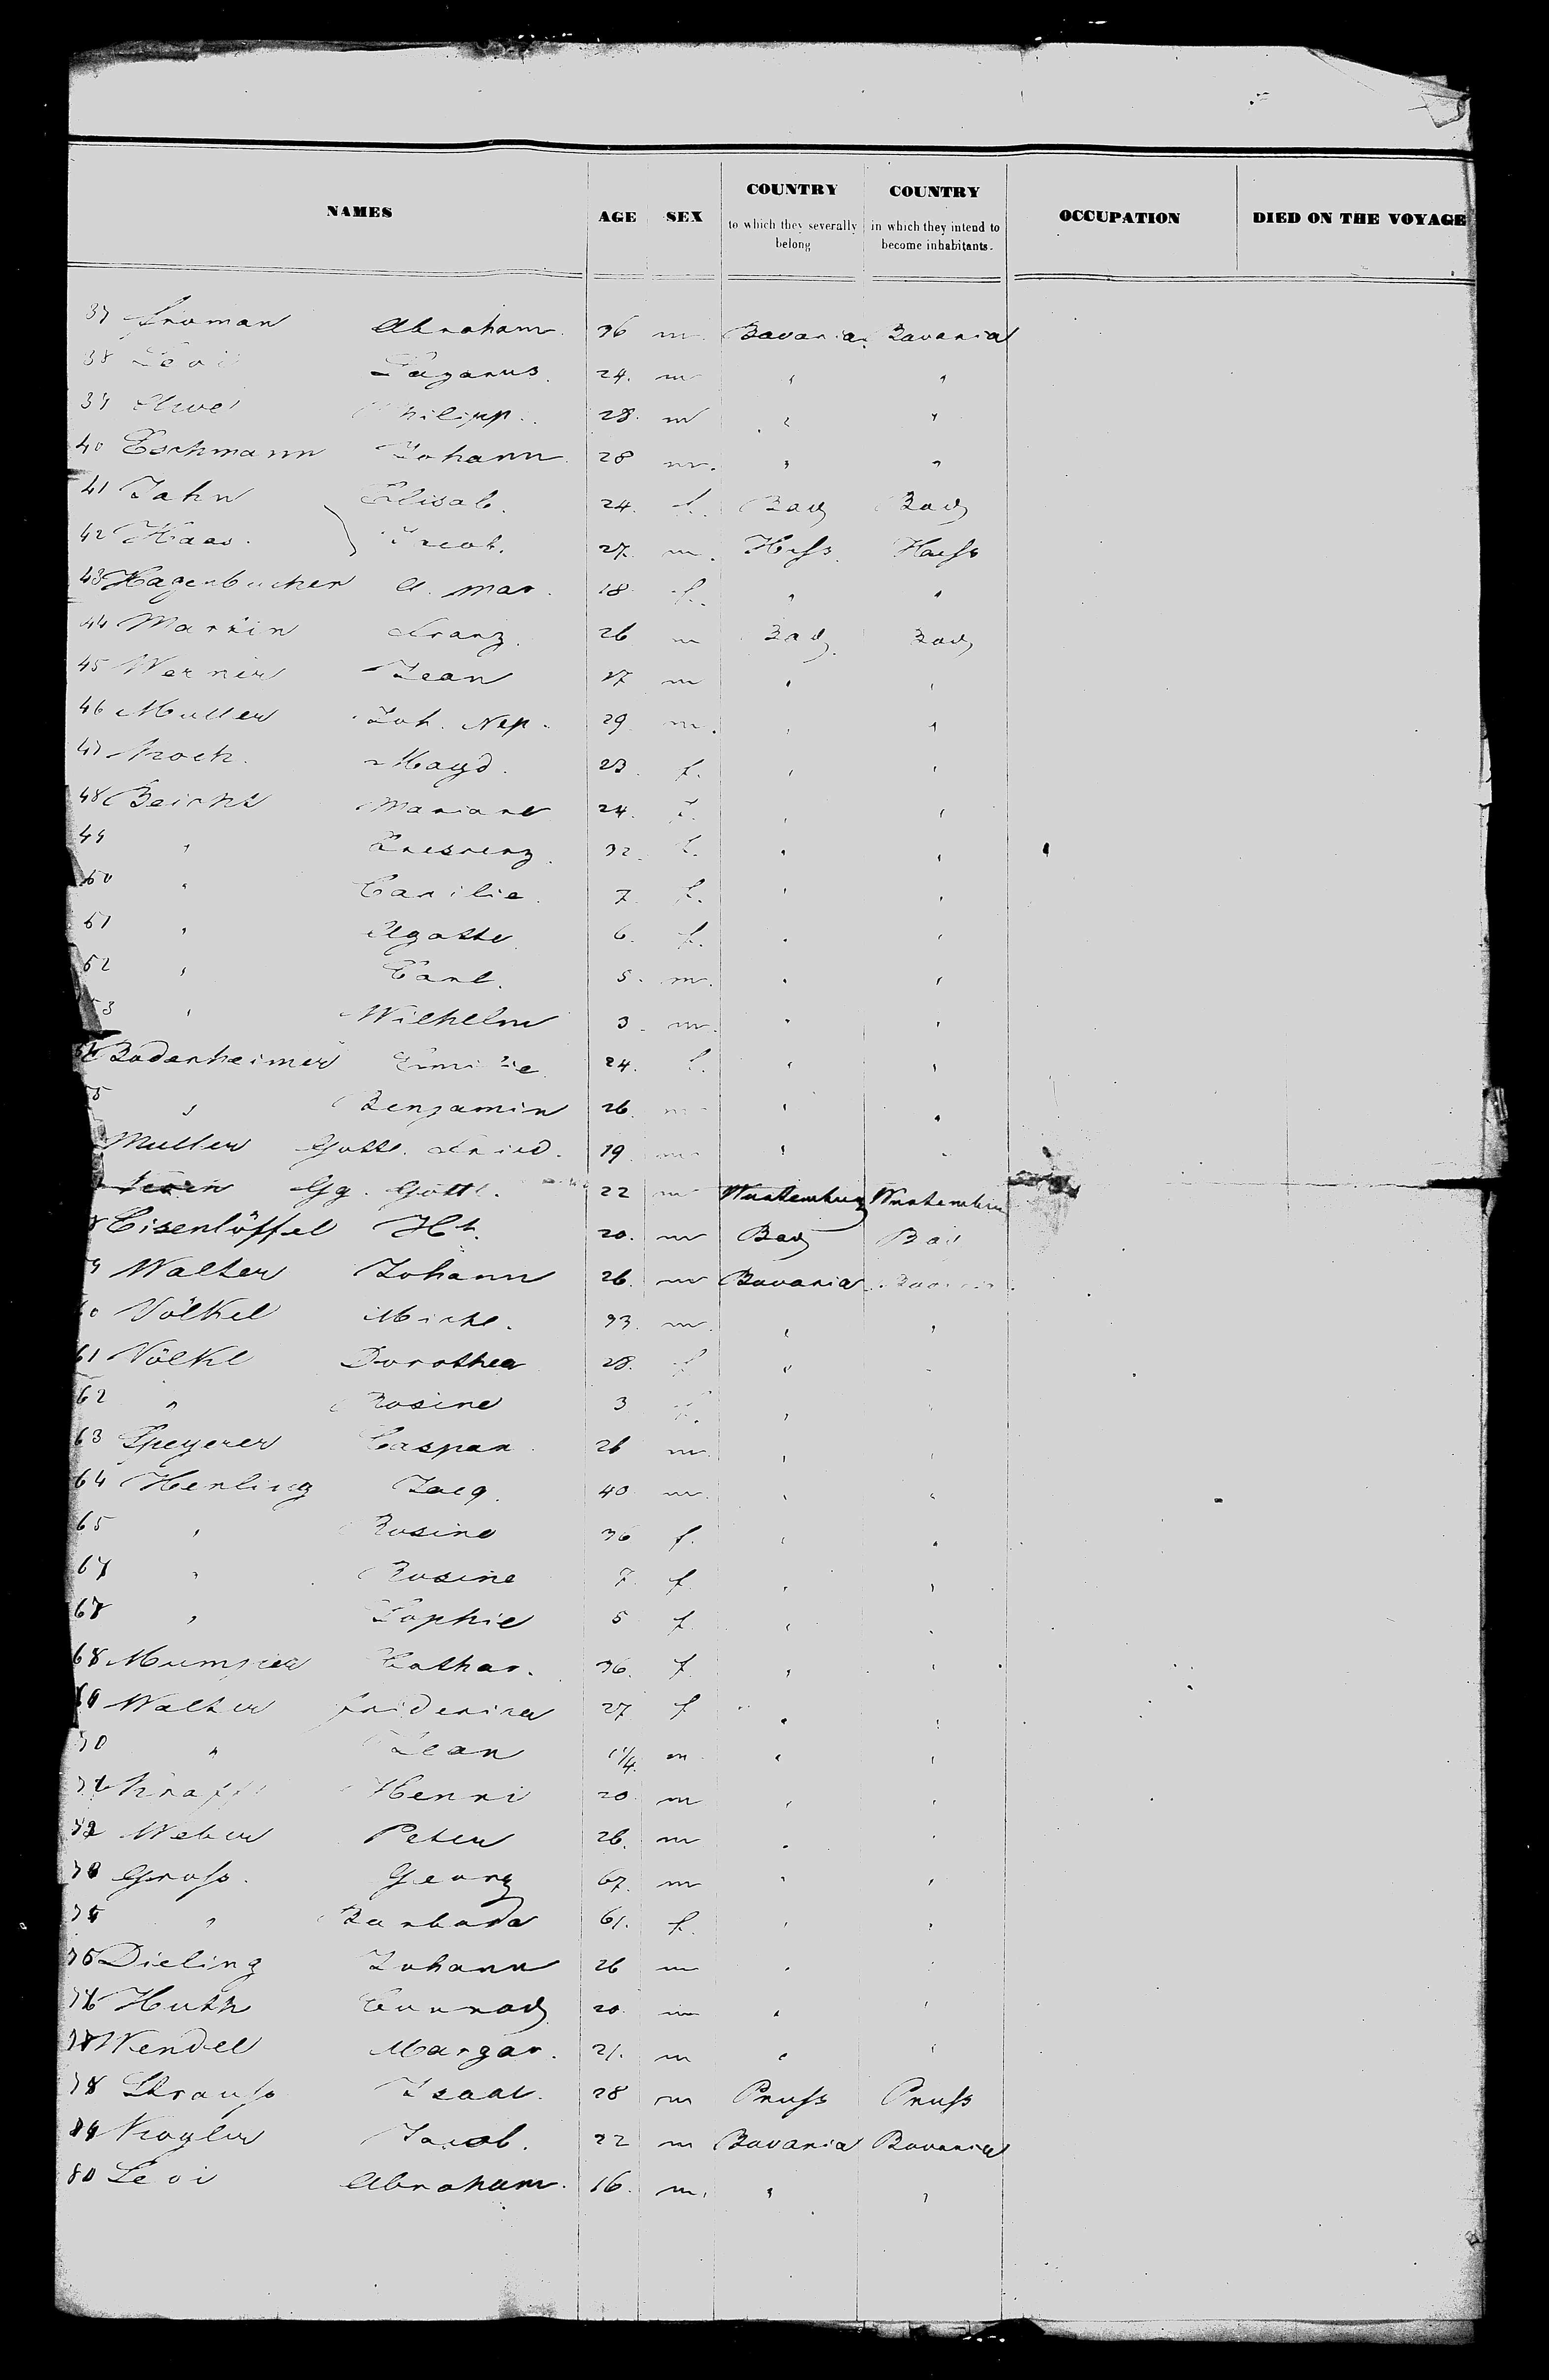 NAMES AGE SEX COUNTRY to which they severally belong COUNTRY in which they intend to become inhabitants. OCCUPATION DIED ON THE VOYAGE
37 Froman Abraham. 36 m. Bavaria. Bavaria
38 Levi Lazarus. 24. m " "
39 Philipp. 28. m " "
40 Eschmann Johann. 28 m. " "
41 Jahn Elisab. 24. f. Bad Bad
42 Haas. Jacob. 27. m. Hess. Hess
43 Hagenbucher A. Mar. 18. f. " "
44 Martin Franz. 26 m Bad. Bad
45 Werner Jean 17 m " "
46 Muller Joh. Nep. 29 m. " "
47 Magd. 23. f. " "
48 Beicht Mariane 24. f. " "
49 " Kreszenz. 32. f. " "
50 " Cacilie. 7. f. " "
51 " Agatte 6. f. " "
52 " Carl. 5. m. " "
53 " Wilhelm 3. m. " "
54 Bodenheimer Emilie 24. f. " "
55 " Benjamin 26. m " "
Muller Gottl. Fried. 19. m " "
Gg. Gottl. 22 m Wurtemburg Wurtembu
8 Eisenlöffel Ht. 20. m Bad Bad
9 Walter Johann 26. m Bavaria Bavaria
60 Völkel Michl. 33. m. " "
61 Völkl Dorothea 28. f " "
62 " Rosine 3 f. " "
63 Speyerer Caspar 26 m. " "
64 Henling Jacq. 40 m. " "
65 " Rosine 36 f. " "
67 " Rosine 7. f " "
67 " Sophie 5 f. " "
68 Cathar. 36. f " "
69 Walter Friderica 27 f " "
70 " Jean 1 1/4. m " "
71 Kraff Henri 20 m " "
72 Weber Peter 26. m " "
73 Gross. Georg 67. m " "
74 " Barbara 61. f. " "
75 Dieling Johann 26 m " "
76 Huth Conrad 20. m " "
77 Wendel Margar. 21. m " "
78 Strauss Isaac. 28 m Pruss Pruss
79 Jacob. 22 m Bavaria Bavaria
80 Levi Abraham. 16. m. " "